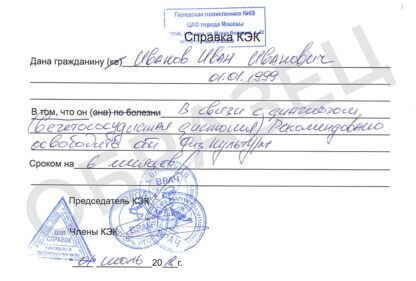 Городская поликлиника №68
ЦАО города Москвы
Справка КЭК
Дана гражданину (ке) Иванов Иван Иванович
01.01.1999
В том, что он (она) по болезни В связи с диагнозом
(Вегетососудистая дистония) Рекомендовано
освободить от физкультуры
Сроком на 6 месяцев
Председатель КЭК
Члены КЭК
ВРАЧ
ВРАЧ
ДЛЯ
СПРАВОК
ГОРОДСКАЯ
июль 20
ОБРАЗЕЦ